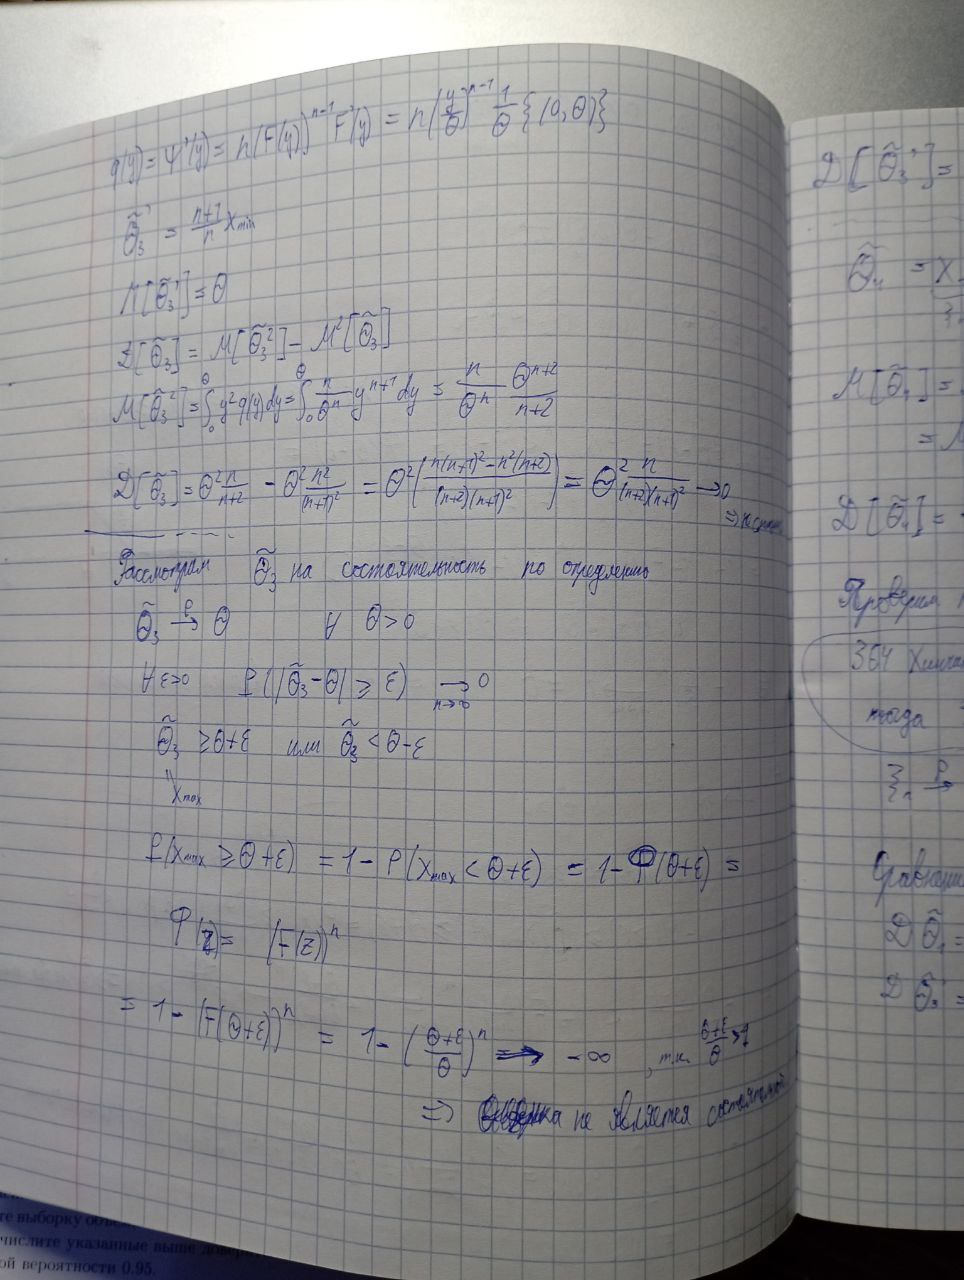 φ(y) = Ψ'(y) = n(F(y))^{n-1} F'(y) = n(y/Θ)^{n-1} 1/Θ {(0, Θ)}
Θ̃₃' = (n+1)/n x_{min}
M[Θ̃₃'] = Θ
D[Θ̃₃] = M[Θ̃₃²] - M²[Θ̃₃]
M[Θ̃₃²] = ∫₀^Θ y² φ(y) dy = ∫₀^Θ n/Θⁿ y^{n+1} dy = n/Θⁿ Θ^{n+2}/(n+2)
D[Θ̃₃] = Θ² n/(n+2) - Θ² n²/(n+1)² = Θ² ((n(n+1)² - n²(n+2))/((n+2)(n+1)²)) = Θ² n/((n+2)(n+1)²) → 0
⇒
Рассмотрим Θ̃₃ на состоятельность по определению
Θ̃₃ →^P Θ ∀ Θ > 0
∀ ε>0 P(|Θ̃₃ - Θ| ≥ ε) →_{n→∞} 0
Θ̃₃ ≥ Θ+ε или Θ̃₃ < Θ-ε
"
x_{max}
P(x_{max} ≥ Θ+ε) = 1 - P(x_{max} < Θ+ε) = 1 - Φ(Θ+ε) =
Φ(z) = (F(z))ⁿ
= 1 - (F(Θ+ε))ⁿ = 1 - ((Θ+ε)/Θ)ⁿ → -∞, т.к. (Θ+ε)/Θ > 1
⇒ не является состоятельной
D[Θ̃₃'] =
Θ̃₄ = x
M[Θ̃₄] =
= M
D[Θ̃₄] =
Проверка
ЗБЧ Хинчи
тогда
ξₙ →^P
Сравнени
D Θ̃₁ =
D Θ̃₃' =
те выборку объ
числите указанные выше довер
ой вероятности 0.95.